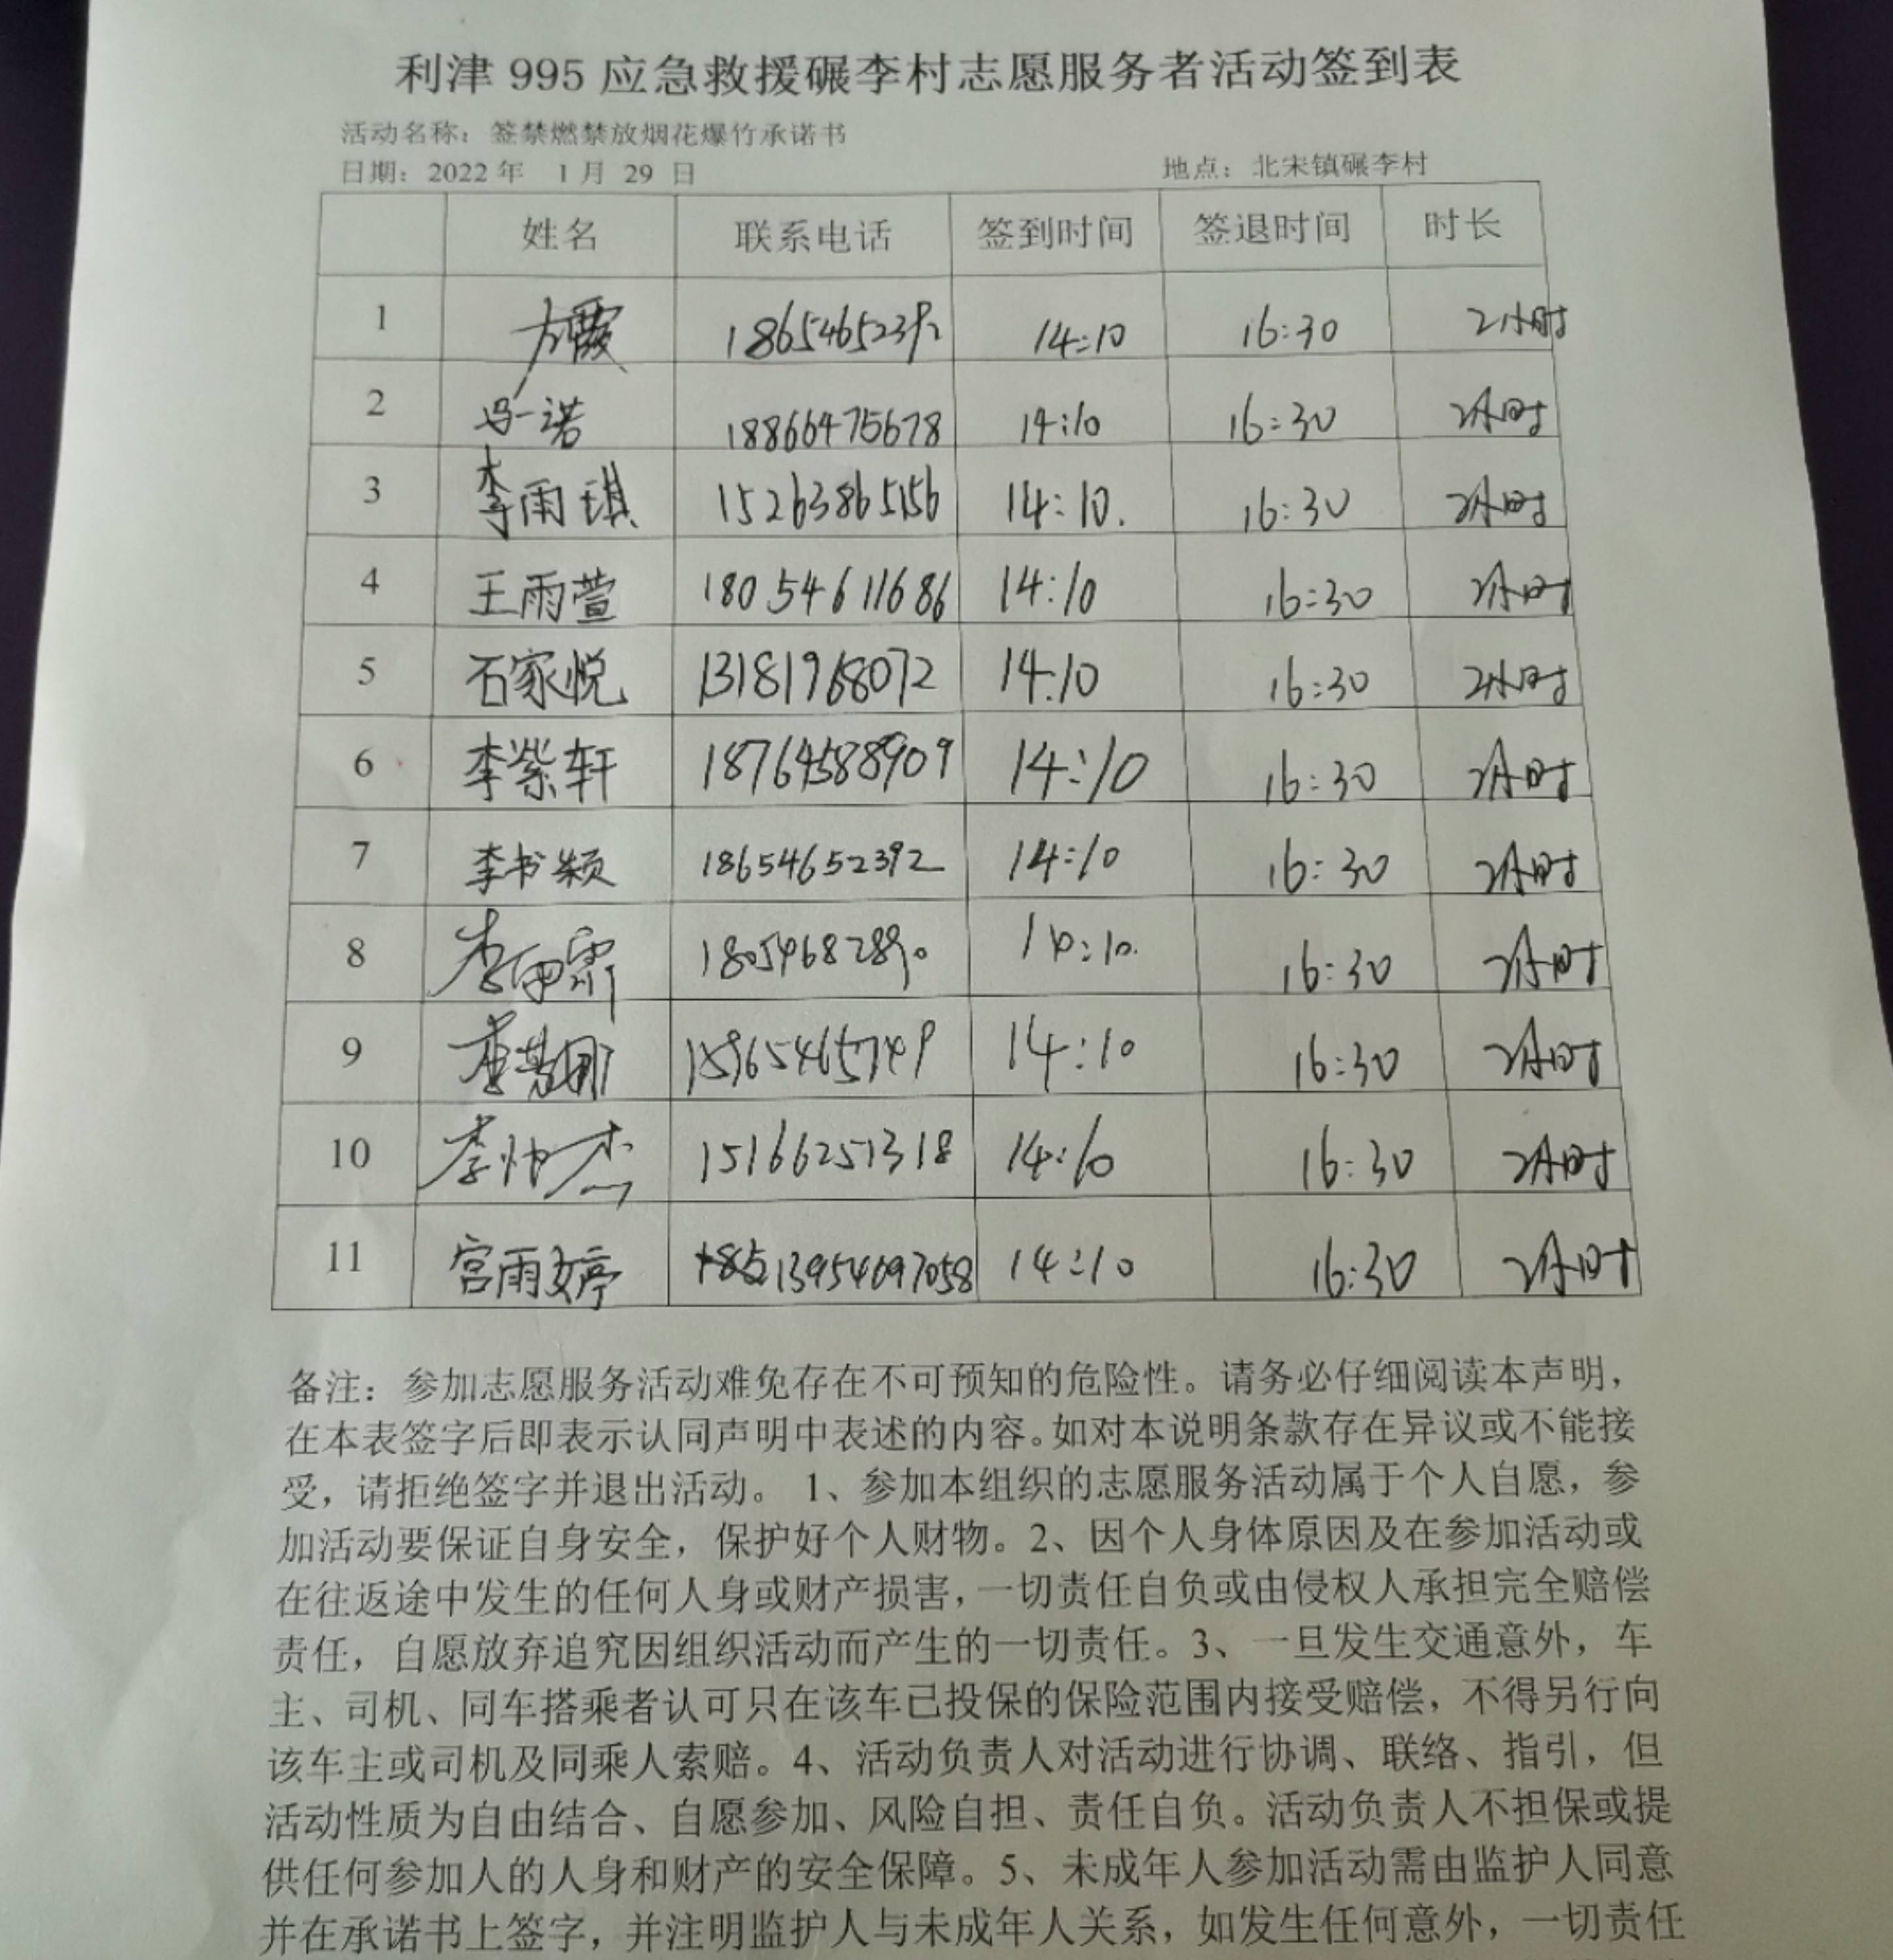 利津 995 应急救援碾李村志愿服务者活动签到表
活动名称：签禁燃禁放烟花爆竹承诺书
日期：2022 年 1 月 29 日 地点：北宋镇碾李村
姓名 联系电话 签到时间 签退时间 时长
1 方霞 18654652392 14:10 16:30 2小时
2 冯一诺 18866475678 14:10 16:30 2小时
3 李雨琪 15263865156 14:10. 16:30 2小时
4 王雨萱 18054611686 14:10 16:30 2小时
5 石家悦 13181968072 14:10 16:30 2小时
6 李紫轩 18764588909 14:10 16:30 2小时
7 李书颖 18654652392 14:10 16:30 2小时
8 李雨霏 18054682890 14:10. 16:30 2小时
9 14:10 16:30 2小时
10 李帅杰 15166251318 14:10 16:30 2小时
11 宫雨婷 13954697058 14:10 16:30 2小时
备注：参加志愿服务活动难免存在不可预知的危险性。请务必仔细阅读本声明，
在本表签字后即表示认同声明中表述的内容。如对本说明条款存在异议或不能接
受，请拒绝签字并退出活动。 1、参加本组织的志愿服务活动属于个人自愿，参
加活动要保证自身安全，保护好个人财物。2、因个人身体原因及在参加活动或
在往返途中发生的任何人身或财产损害，一切责任自负或由侵权人承担完全赔偿
责任，自愿放弃追究因组织活动而产生的一切责任。3、一旦发生交通意外，车
主、司机、同车搭乘者认可只在该车已投保的保险范围内接受赔偿，不得另行向
该车主或司机及同乘人索赔。4、活动负责人对活动进行协调、联络、指引，但
活动性质为自由结合、自愿参加、风险自担、责任自负。活动负责人不担保或提
供任何参加人的人身和财产的安全保障。5、未成年人参加活动需由监护人同意
并在承诺书上签字，并注明监护人与未成年人关系，如发生任何意外，一切责任